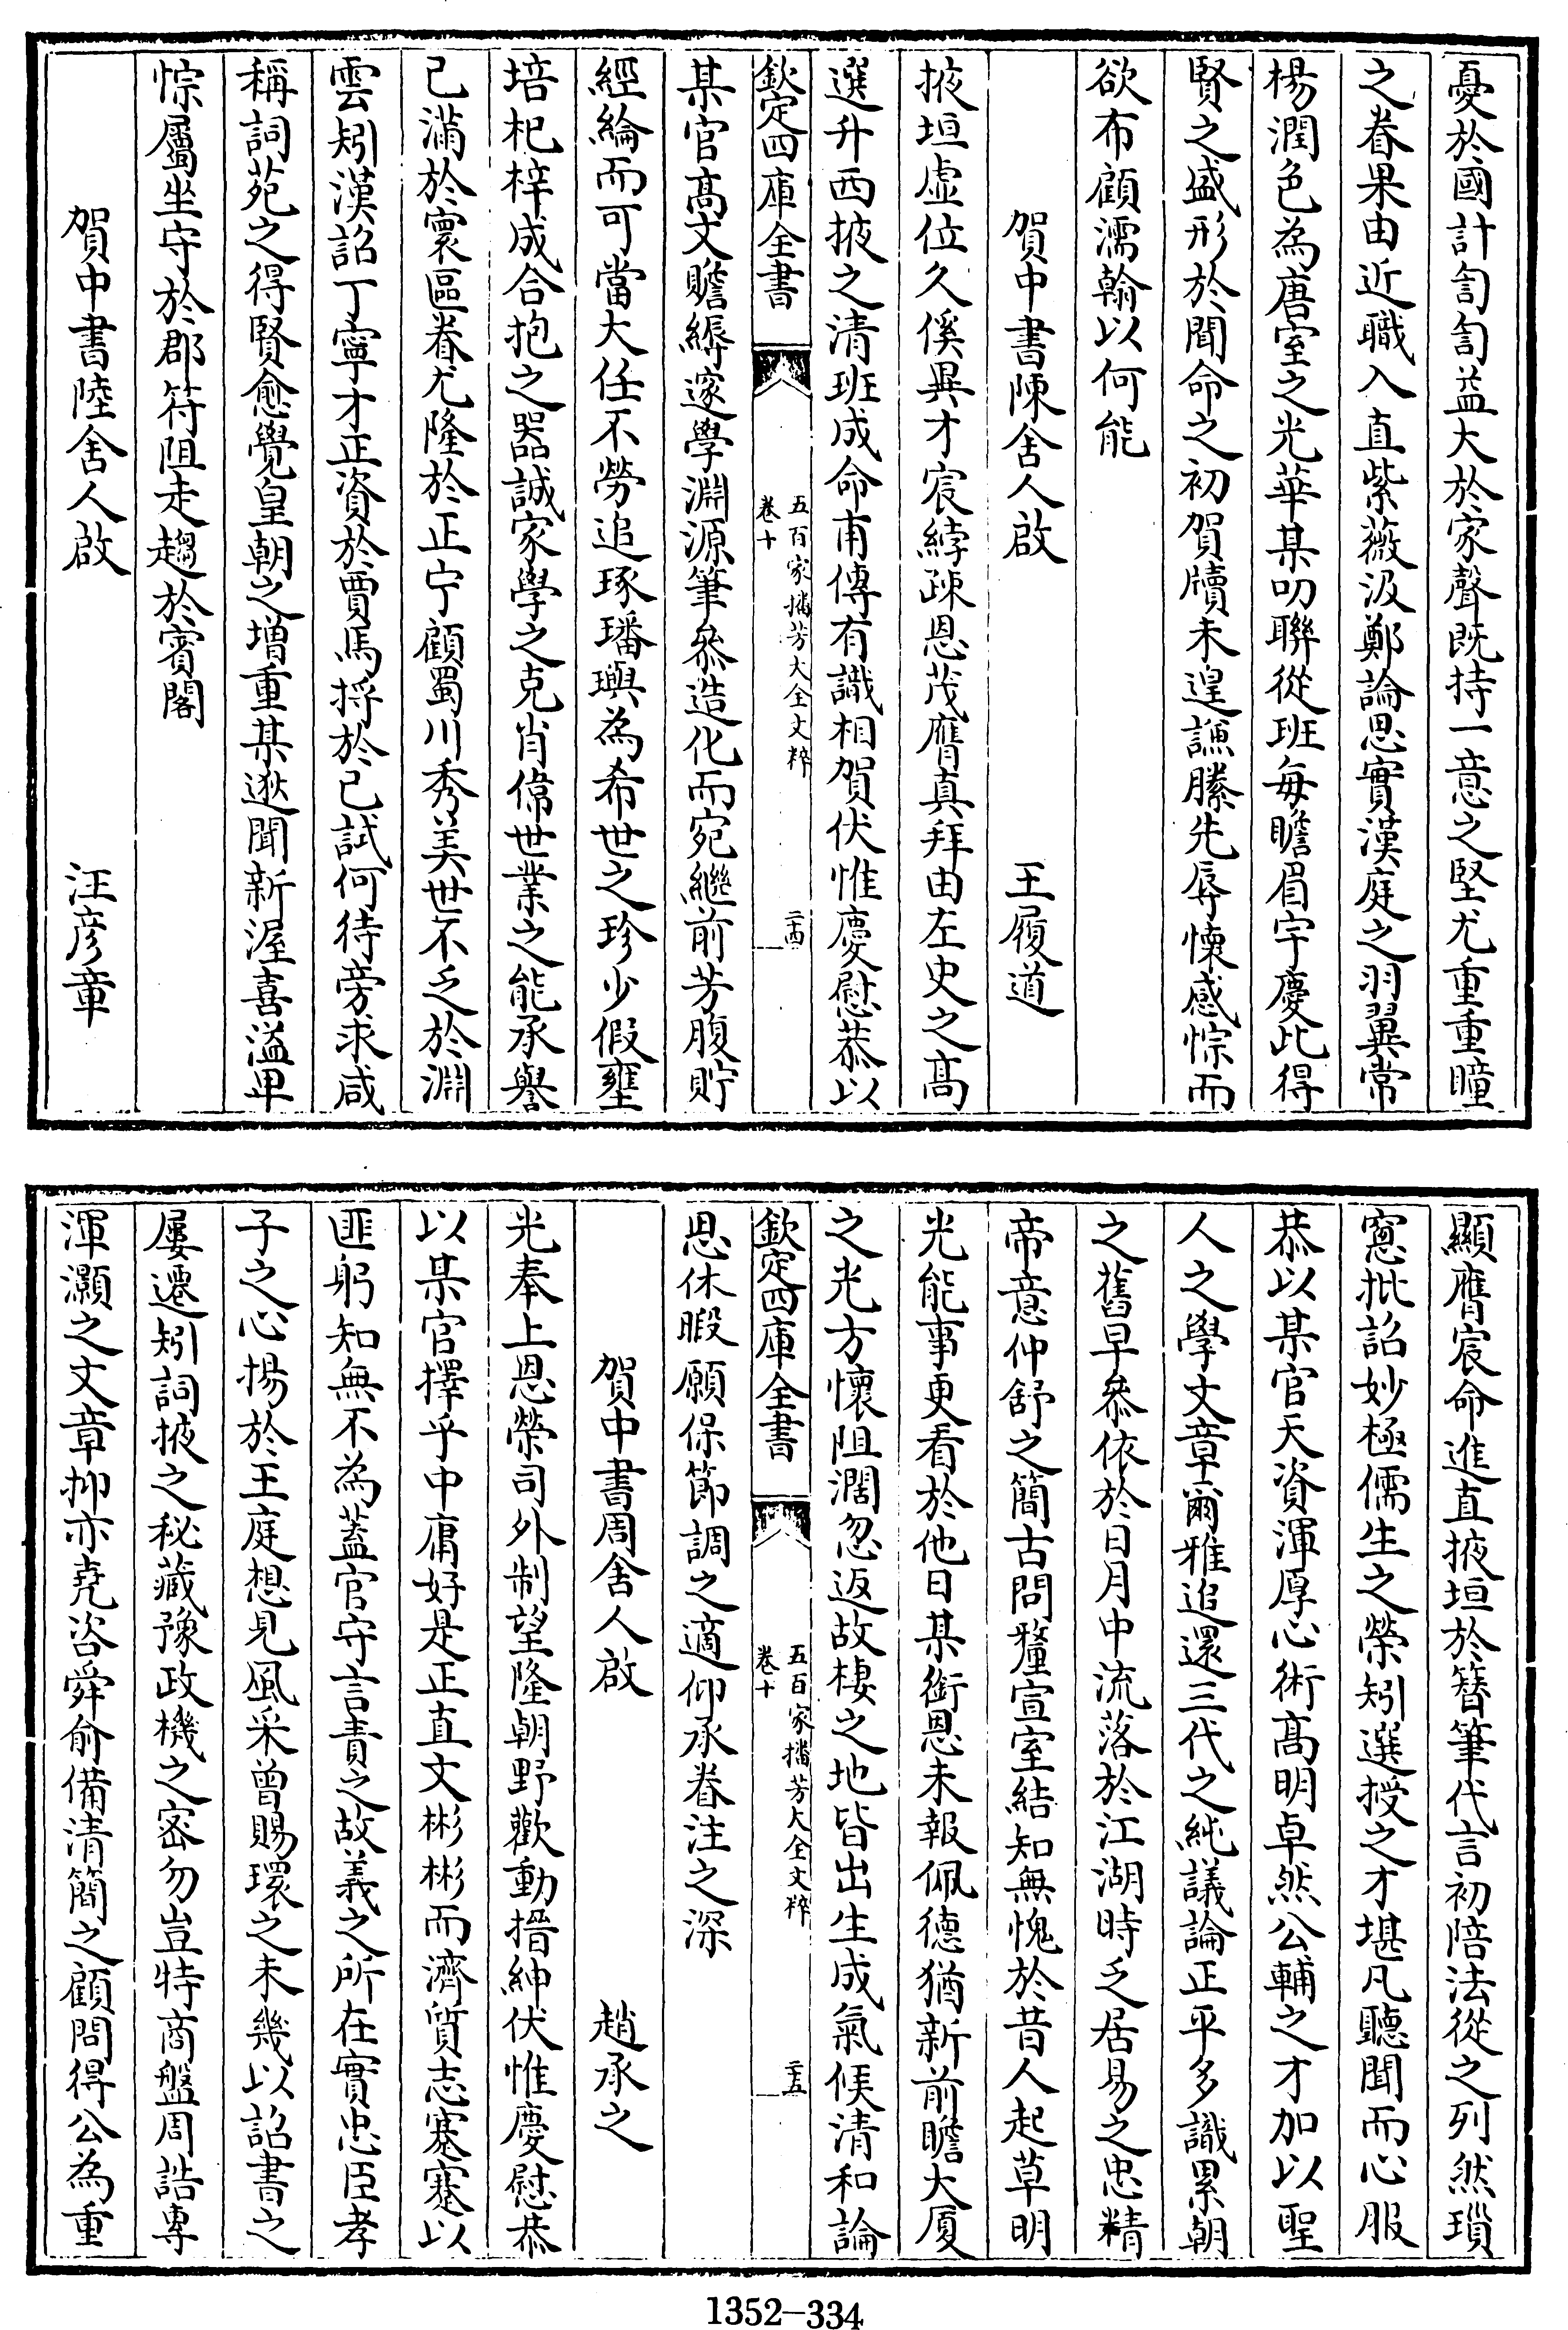 憂於國計訇訇益大於家聲既持一意之堅尤重重瞳
之眷果由近職入直紫薇汲鄭論思實漢庭之羽翼常
楊潤色為唐室之光華某叨聯從班毎瞻眉宇慶此得
賢之盛形於聞命之初賀牘未遑謙縢先辱懷感悰而
欲布顧濡翰以何能
賀中書陳舍人啟 王履道
掖垣虛位久傒異才宸綍疎恩茂膺真拜由左史之髙
選升西掖之清班成命甫傳有識相賀伏惟慶慰恭以
欽定四庫全書 五百家播芳大全文粹 卷十 二十四
某官髙文贍縟邃學淵源筆參造化而宛繼前芳腹貯
經綸而可當大任不勞追琢璠璵為希世之珍少假壅
培杞梓成合抱之器誠家學之克肖偉世業之能承譽
已滿於寰區眷尤隆於正宁顧蜀川秀美世不乏於淵
雲矧漢詔丁寧才正資於賈馬将於已試何待旁求咸
稱詞苑之得賢愈覺皇朝之增重某逖聞新渥喜溢卑
悰屬坐守於郡符阻走趨於賓閣
賀中書陸舍人啟 汪彦章
顯膺宸命進直掖垣於簪筆代言初陪法從之列然瑣
窻批詔妙極儒生之榮矧選授之才堪凡聽聞而心服
恭以某官天資渾厚心術髙明卓然公輔之才加以聖
人之學文章爾雅追還三代之純議論正平多識累朝
之舊早參依於日月中流落於江湖時乏居易之忠精
帝意仲舒之簡古問釐宣室結知無愧於昔人起草明
光能事更看於他日某銜恩未報佩德猶新前瞻大厦
之光方懷阻濶忽返故棲之地皆出生成氣候清和論
欽定四庫全書 五百家播芳大全文粹 卷十 二十五
思休暇願保節調之適仰承眷注之深
賀中書周舍人啟 趙承之
光奉上恩榮司外制望隆朝野歡動搢紳伏惟慶慰恭
以某官擇乎中庸好是正直文彬彬而濟質志蹇蹇以
匪躬知無不為蓋官守言責之故義之所在實忠臣孝
子之心揚於王庭想見風采曾賜環之未幾以詔書之
屢遷矧詞掖之秘藏豫政機之密勿豈特商盤周誥專
渾灝之文章抑亦堯咨舜俞備清簡之顧問得公為重
1352-334